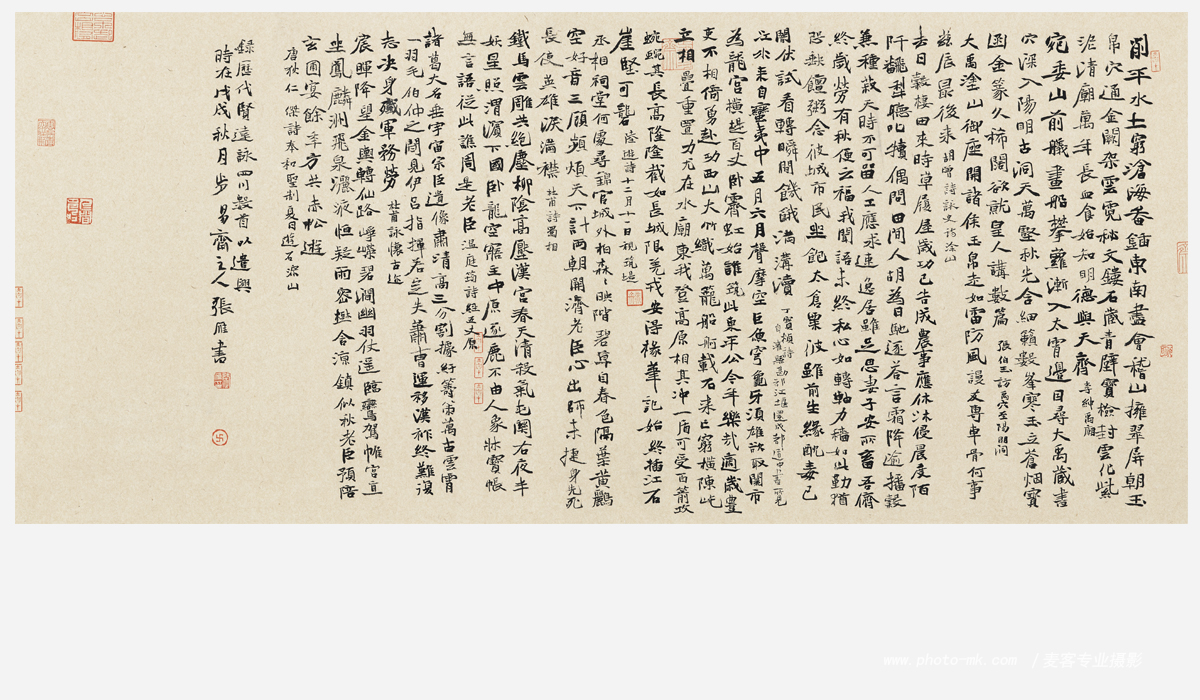 削平水土窮滄海畚鍤東南盡會稽山擁翠屏朝玉
帛穴通金闕架雲霓秘文鏤石藏青壁寶檢封雲化紫
泥清廟萬年長血食始知明德與天齊 李紳禹廟
宛委山前艤畫船攀蘿漸入太霄邊因尋大禹藏書
穴深入陽明古洞天萬壑秋光含細籟數峯寒玉立蒼烟寶
函金篆久稀闊欲就皇人講數篇 張伯玉訪禹穴至陽明洞
大禹塗山御座開諸侯玉帛走如雷防風謾又專車骨何事
茲辰最後來 胡曾詩詠史詩塗山
去日穀樓田來時草履屋歲功已告成農事應休沐侵晨度陌
阡齪犁聽叱犢偶問田間人胡為日馳逐答言霜降逾播穀
兼種菽天時不可留人工應求速逸居雖足思妻子安所畜吾儕
終歲勞有秋便云福我聞語未終私心如轉軸力穡如此勤猶
鬧伏試看轉瞬間餓殍滿溝瀆 丁寶楨詩
江水來自蠻夷中五月六月聲摩空巨魚穹龜牙須雄欲取闤市
為龍宮橫堤百丈臥霽虹始誰築此東平公今年樂哉適歲豐
吏不相倚勇赴功西山大竹織萬籠船舸載石來亡窮橫陳屹
立相疊重置功尤在水廟東我登高原相其沖一盾可受百箭攻
蜿蜿其長高隆隆截如長城限羌戎安得椽筆記始終插江石
崖堅可礱 陸遊詩十二月十一日視築堤
丞相祠堂何處尋錦官城外柏森森映階碧草自春色隔葉黃鸝
空好音三顧頻煩天下計兩朝開濟老臣心出師未捷身先死
長使英雄淚滿襟 杜甫詩蜀相
鐵馬雲雕共絕塵柳陰高壓漢宮春天清殺氣屯關右夜半
妖星照渭濱下國臥龍空寤主中原逐鹿不由人象床寶帳
無言語從此譙周是老臣 溫庭筠詩經五丈原
諸葛大名垂宇宙宗臣遺像肅清高三分割據紆籌策萬古雲霄
一羽毛伯仲之間見伊呂指揮若定失蕭曹運移漢祚終難復
志決身殲軍務勞 杜甫詠懷古迹
宸暉降望金輿轉仙路崢嶸碧澗幽羽仗遙臨鸞鶴駕帷宮直
坐鳳麟洲飛泉灑液恒疑雨密樹含涼鎮似秋老臣預陪
玄圃宴餘年方共赤松遊
唐狄仁傑詩奉和聖制夏日遊石淙山
錄歷代賢達詠四川數首以遣興
時在戊戌秋月步易齋主人張雁書
www.photo-mk.com /麦客专业摄影